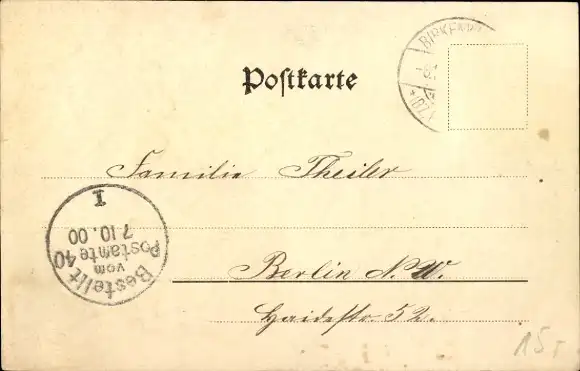 Postkarte
BIRKENFE
Familie Theiler
Bestellt
vom
Postamte 40
7.10.00
1
Berlin N.W.
Haidestr. 52.